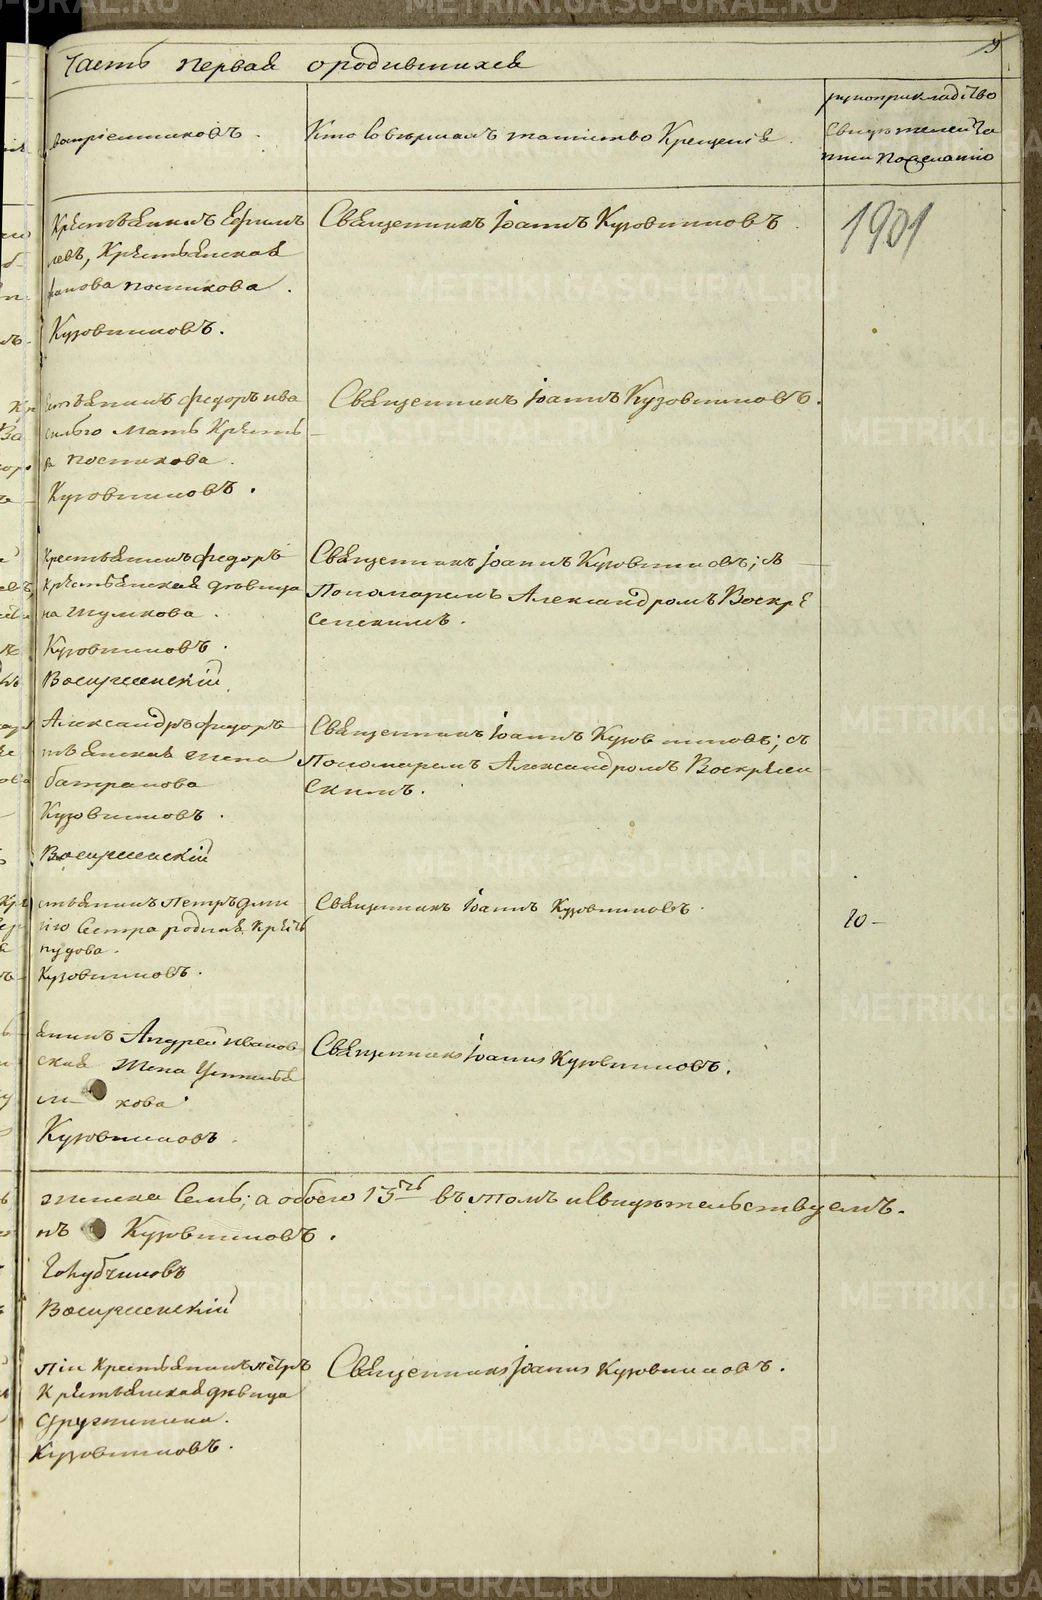 Часть первая о родившихся
9
воспріемниковъ.
Кто Совершалъ таинство Крещенія.
рукоприкладство
Свидѣтелей За
писи по желанію
Крестьянинъ Ефимъ
левъ, Крестьянская
фанова постникова.
Кузовниковъ.
Священникъ Іоаннъ Кузовниковъ.
1901
стьянинъ Федоръ ива
сильго Мать Крсть
ва постникова.
Кузовниковъ.
Священникъ Іоаннъ Кузовниковъ.
Крестьянинъ Федоръ
Крестьянская дѣвица
на Шумкова.
Кузовниковъ.
Воскресенскій
Священникъ Іоаннъ Кузовниковъ; съ
Пономаремъ Александромъ Воскре
сенскимъ.
Александръ Федоръ
тьянская жена
батранова
Кузовниковъ.
Воскресенскій
Священникъ Іоаннъ Кузовниковъ; съ
Пономаремъ Александромъ Воскресен
скимъ.
стьянинъ Петръ
Сестра родная Кресть
пудова.
Кузовниковъ.
Священникъ Іоаннъ Кузовниковъ.
20
янинъ Андрей иванов
ская жена
кова
Кузовниковъ.
Священникъ Іоаннъ Кузовниковъ.
женска Семь; а обоего 13ть въ томъ и Свидѣтельствуемъ.
нъ Кузовниковъ.
Голубчиковъ
Воскресенскій
Крестьянинъ Петръ
Крестьянская дѣвица
Дружинина.
Кузовниковъ.
Священникъ Іоаннъ Кузовниковъ.
METRIKI.GASO-URAL.RU